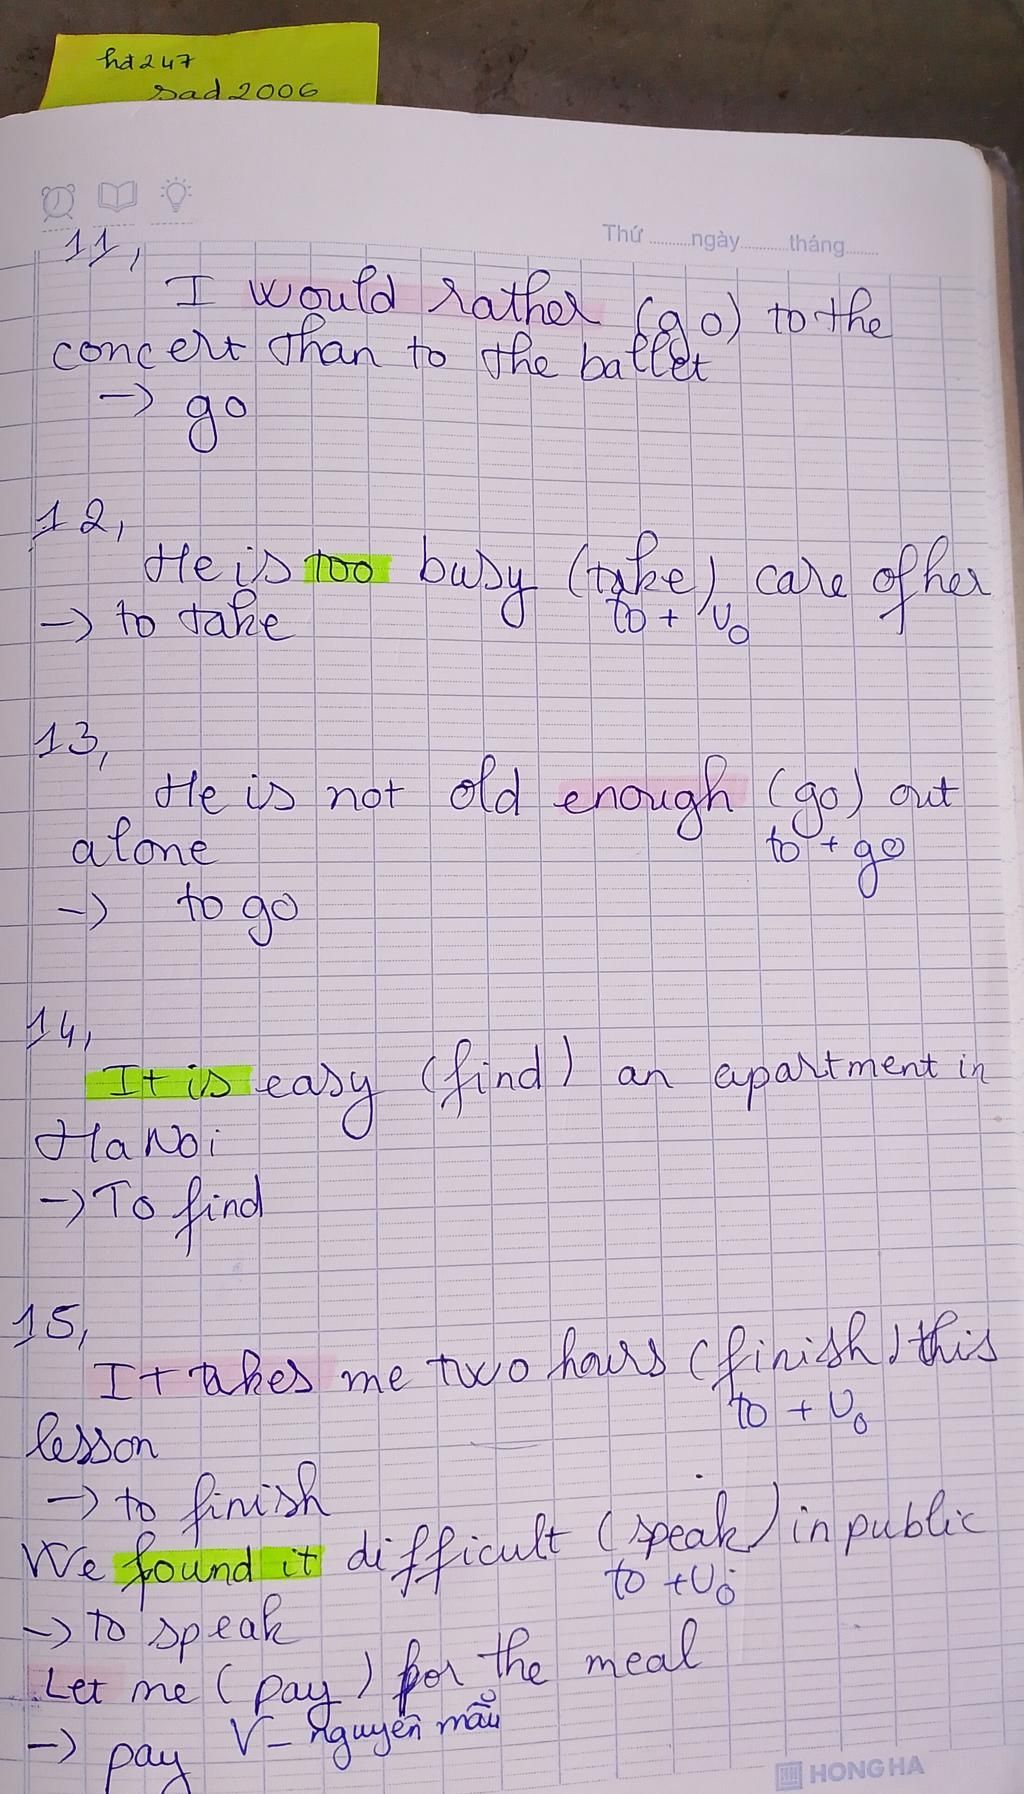 hd247
sad2006
Thứ ........ngày.........tháng........
11,
I would rather (go) to the
concert than to the ballet
-> go
12,
He is too busy (take) care of her
to + V₀
-> to take
13,
He is not old enough (go) out
to + go
alone
-> to go
14,
It is easy (find) an apartment in
Ha Noi
-> To find
15,
It takes me two hours (finish) this
to + V₀
lesson
-> to finish
We found it difficult (speak) in public
to + V₀
-> to speak
Let me (pay) for the meal
V - nguyên mẫu
-> pay
HONG HA